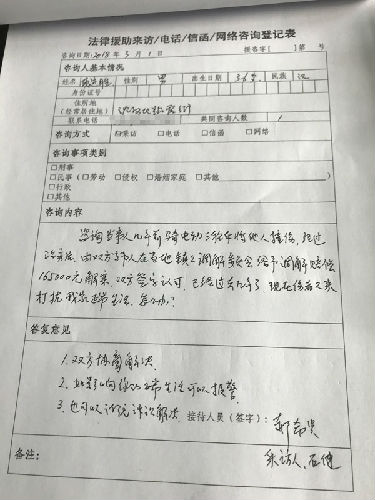 法律援助来访/电话/信函/网络咨询登记表
咨询日期:2018年5月1日 援咨字[ ]第 号
咨询人基本情况
姓名 性别 男 出生日期 民族 汉
身份证号
住所地
(经常居住地)
联系电话 共同咨询人数 1
咨询方式 ☑来访 □电话 □信函 □网络
咨询事项类别
□刑事
□民事(□劳动 □侵权 □婚姻家庭 □其他 )
□行政
□其他
咨询内容
咨询当事人几年前骑电动三轮车将他人撞伤,经过
由双方当事人在当地镇上调解委员会给予调解赔偿
165000元解案,双方签字认可,已经过去几年了,现在伤者又来
打扰我家正常生活,怎么办?
答复意见
1.双方协商解决
2.如影响你的正常生活可以报警
3.也可以诉讼法院解决 接待人员(签字):
备注: 来访人